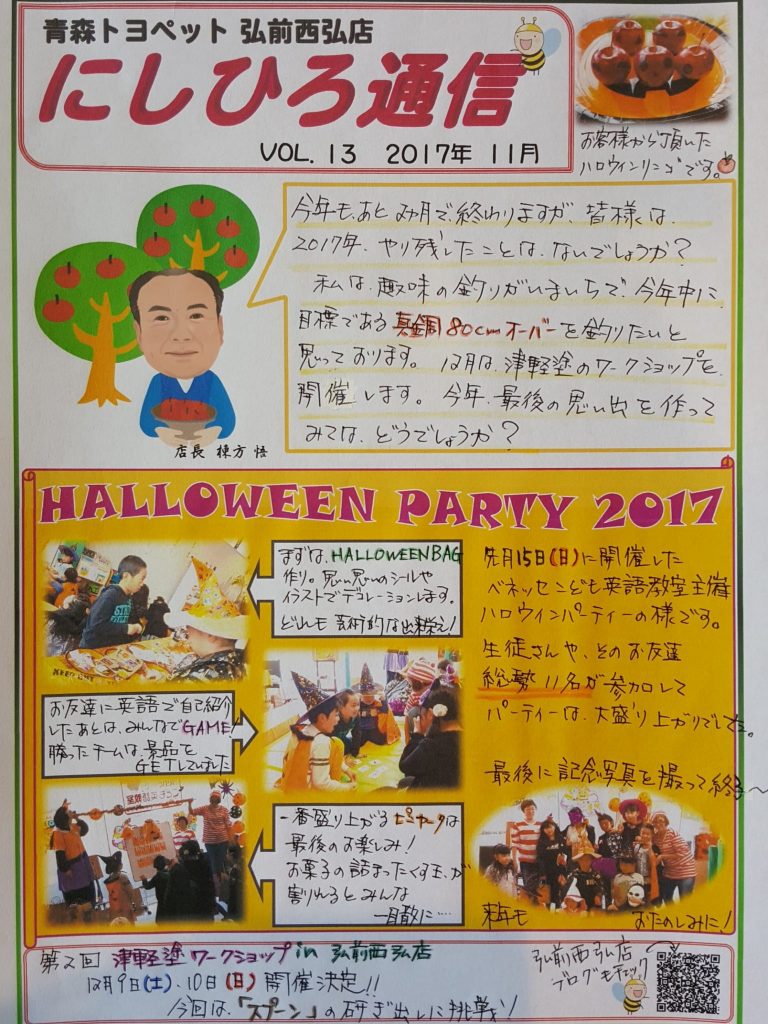 青森トヨペット 弘前西弘店
にしひろ通信
VOL. 13 2017年 11月
お客様から頂いた
ハロウィンリンゴです。
今年も、あと2ヵ月で、終わりますが、皆様は、
2017年、やり残したことは、ないでしょうか？
私は、趣味の釣りがいまいちで、今年中に、
目標である真鯛80cmオーバーを釣りたいと
思っております。 12月は、津軽塗のワークショップを、
開催します。 今年、最後の思い出を作って
みては、どうでしょうか？
店長 棟方 悟
HALLOWEEN PARTY 2017
まずは、HALLOWEEN BAG
作り。思い思いのシールや
イラストでデコレーションします。
どれも芸術的な出来栄え！
先月15日（日）に開催した
ベネッセこども英語教室主催
ハロウィンパーティーの様です。
生徒さんや、そのお友達
総勢 11名が参加して
パーティーは、大盛り上がりでした。
お友達に英語で自己紹介
したあとは、みんなでGAME！
勝ったチームは、景品を
GETしていました
最後に記念写真を撮って終了〜
一番盛り上がるピニャータは
最後のお楽しみ！
お菓子の詰まったくす玉が
割れるとみんな
一目散に……
来年も おたのしみに！
第2回 津軽塗ワークショップ in 弘前西弘店
12月9日（土）、10日（日）開催決定!!
今回は、「スプーン」の研ぎ出しに挑戦！
弘前西弘店
ブログもチェック